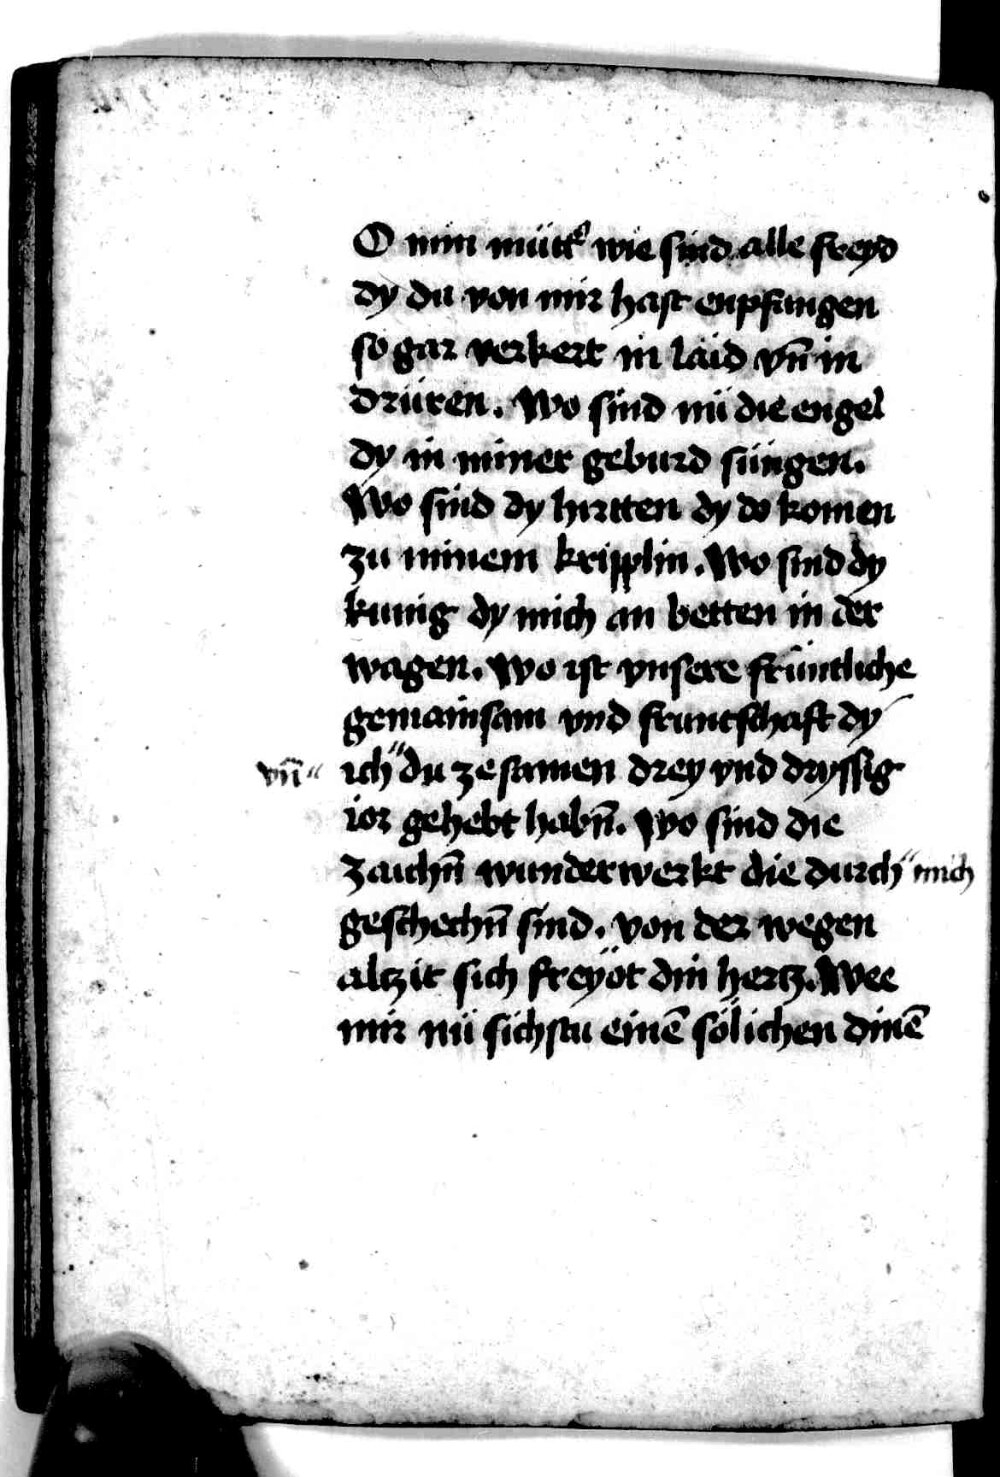 O min müttʾ wie sind alle freyd
dy du von mir hast enpfangen
so gar verkert in laid vn̄ in
drüren. Wo sind nü die engel
dy in miner geburd süngen.
Wo sind dy hirtten dy do komen
zu minem kripplin. Wo sind dy
kunig dy mich an betten in der
wagen. Wo ist vnsere früntliche
gemainsam vnd fruntschaft dy
vn̄〃 ich〃du zesamen drey vnd dryssig
ior gehebt habn̄. Wo sind die
zaichn̄ wunderwerkt die durch〃mich
geschechn̄ sind. von der wegen
altzit sich freyöt din hertz. Wee
mir nü sichstu einē sölichen dinē